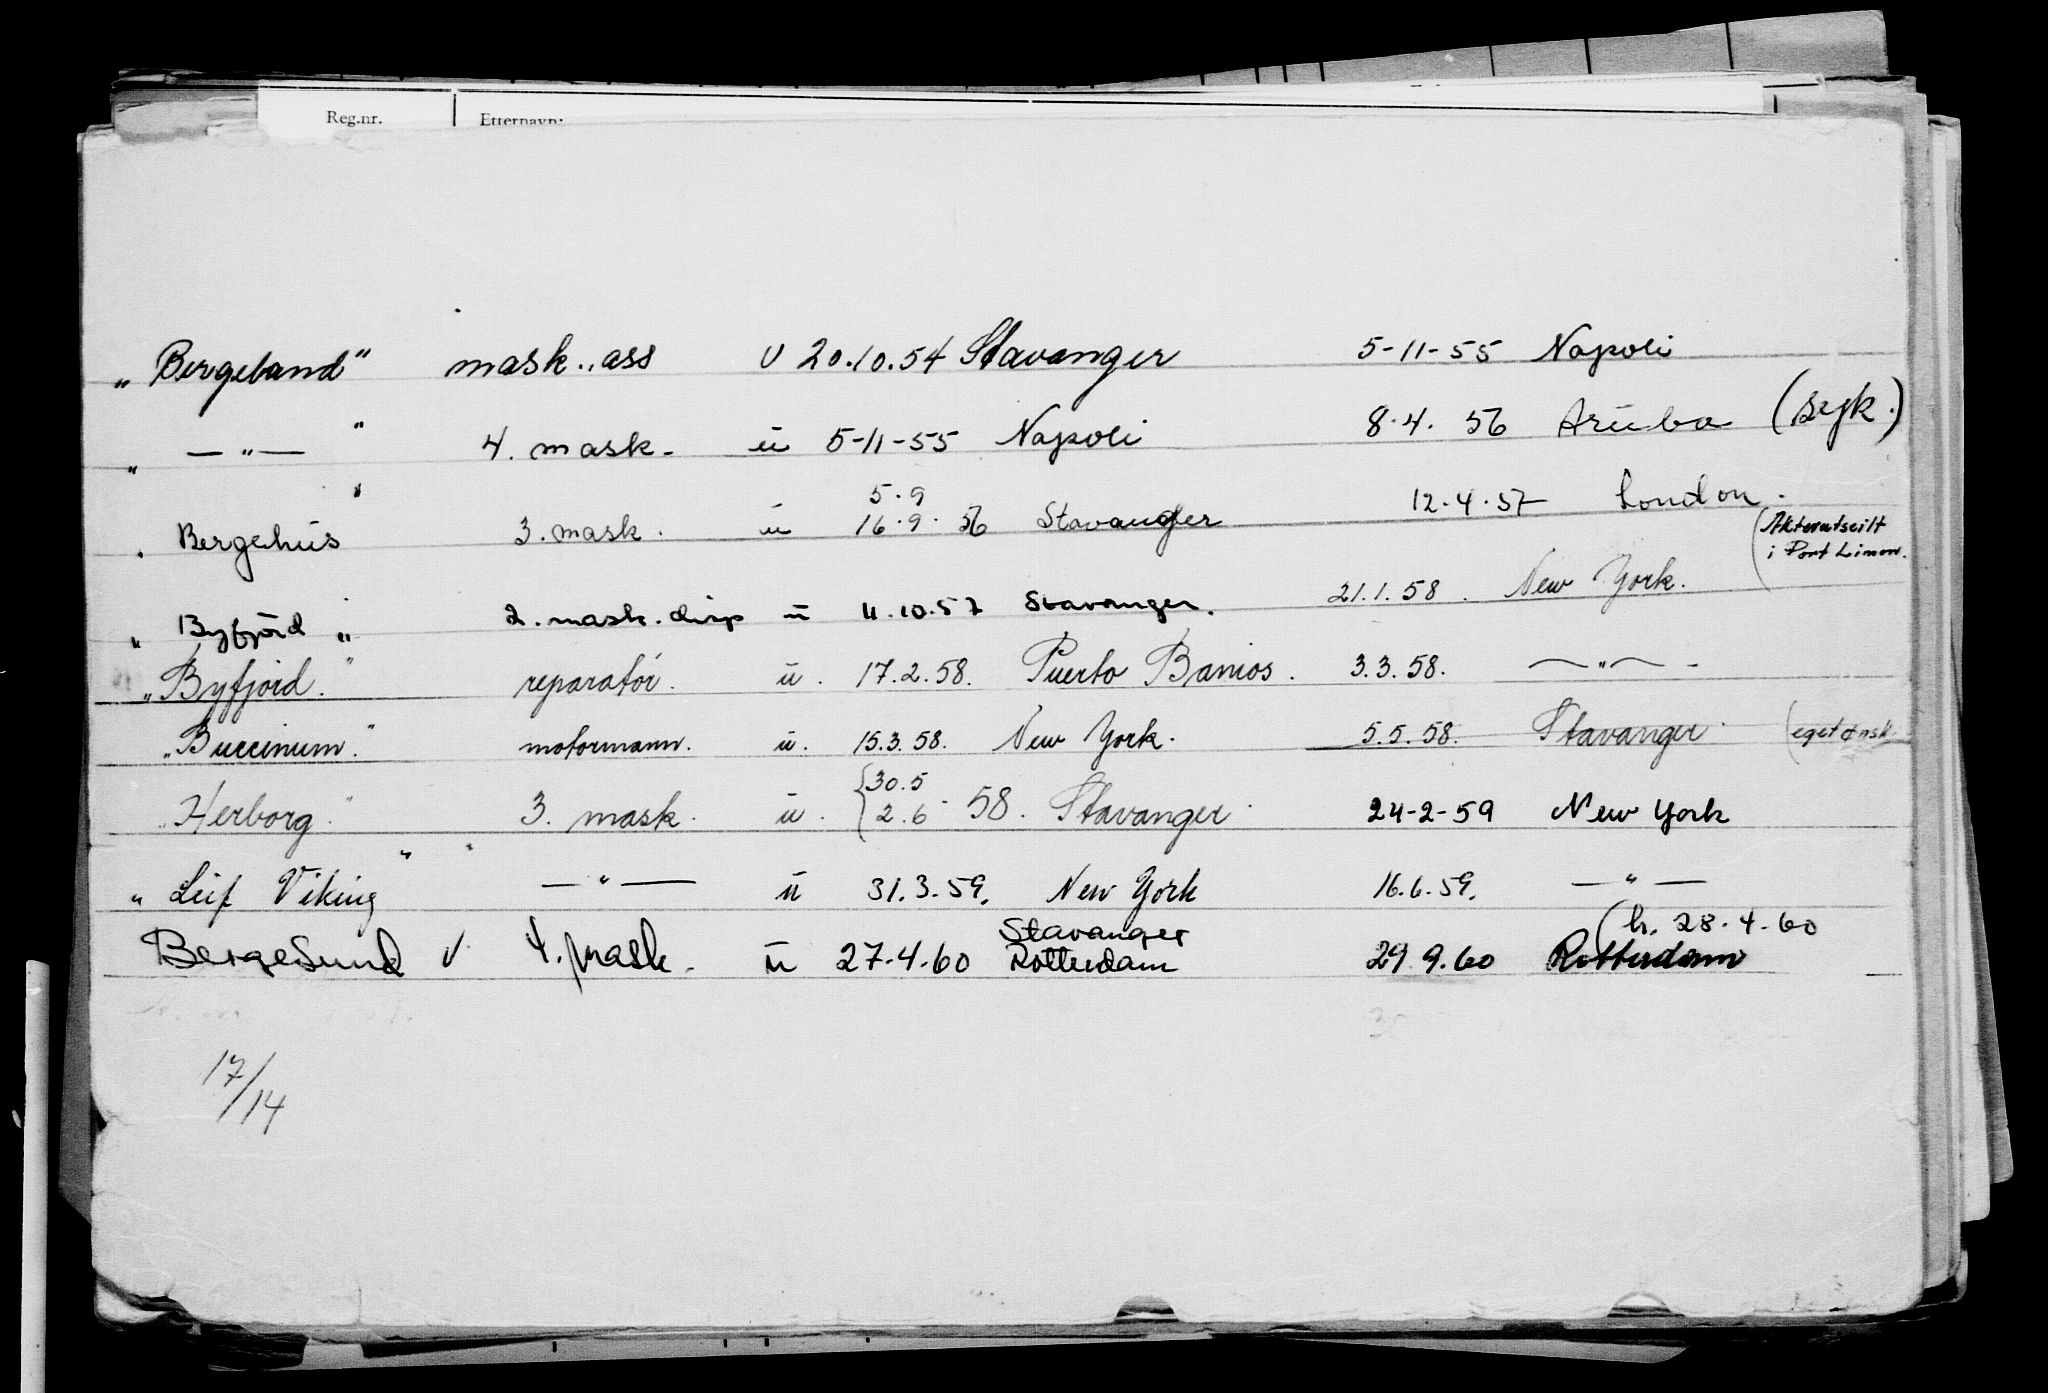 Reg.nr. Etternavn:
„Bergeland" mask. ass u 20.10.54 Stavanger 5-11-55 Napoli
„ —"— " 4. mask. ü 5-11-55 Napoli 8.4.56 Arüba (syk.)
5.9
„ Bergehus " 3. mask. ü 16.9.56 Stavanger 12.4.57 London.
(Akterutseilt
i Port Limon.
„ Byfjord " 2. mask. disp ü 11.10.57 Stavanger. 21.1.58. New York.
„Byfjord." reparatör. ü. 17.2.58. Puerto Barrios. 3.3.58. —"— -
„Buccinum." motormann. ü. 15.3.58. New York. 5.5.58. Stavanger. (eget ønsk
{30.5
„Herborg." 3. mask. ü. 2.6.58. Stavanger. 24-2-59 New York
„ Leif Viking " —"— ü 31.3.59. New York 16.6.59. —"—
Stavanger (h. 28.4.60
Bergesund v 4. mask. ü 27.4.60 Rotterdam 29.9.60 Rotterdam
17/14